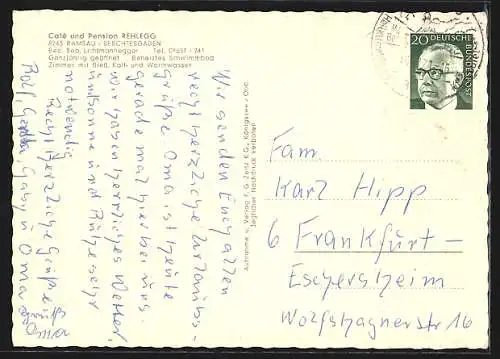 Café und Pension REHLEGG
8243 RAMSAU b. BERCHTESGADEN
Bes. Esb. Lichtmannegger Tel. 08657 / 241
Ganzjährig geöffnet Beheiztes Schwimmbad
Zimmer mit fließ. Kalt- und Warmwasser
Wir senden Euch allen
recht herzliche Urlaubs-
grüße. Oma ist heute
gerade mal hier bei uns.
Wir haben herrliches Wetter
und Sonne und Ruhe sehr
notwendig
Recht herzliche Grüße
Rolf, Gerda, Gaby u. Oma
Gruß
Oma
Aufnahme u. Verlag F. G. Zeitz K.G., Königssee / Obb.
Jeglicher Nachdruck verboten
20
DEUTSCHE
BUNDESPOST
Fam.
Karl Hipp
6 Frankfurt-
Eschersheim
Wolfshagnerstr 16